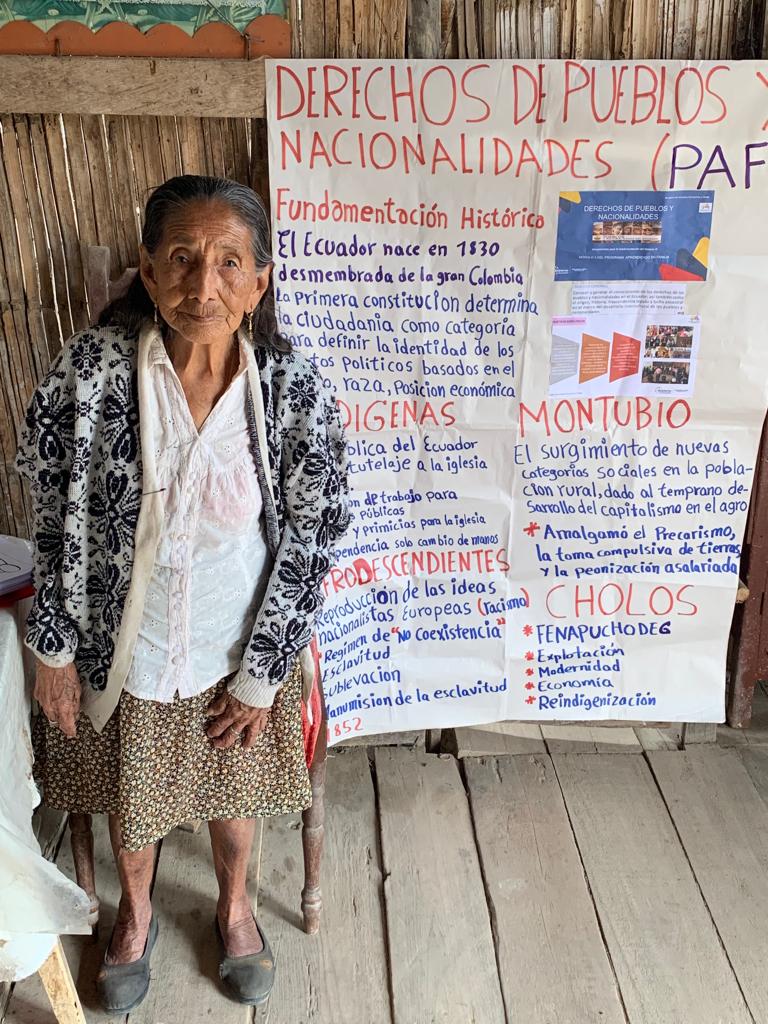 DERECHOS DE PUEBLOS Y
NACIONALIDADES (PAF
Fundamentación Histórica
El Ecuador nace en 1830
desmembrada de la gran Colombia
La Primera constitución determina
la ciudadania como categoría
para definir la identidad de los
tos Politicos basados en el
o, raza, Posición económica
DIGENAS
blica del Ecuador
tutelaje a la iglesia
on de trabajo para
s Públicas
y primicias para la iglesia
ependencia solo cambio de manos
FRODESCENDIENTES
Reproducción de las ideas
nacionalistas Europeas (racismo)
Regimen de "No Coexistencia"
Esclavitud
ublevación
anumision de la esclavitud
1852
DERECHOS DE PUEBLOS Y
NACIONALIDADES
MONTUBIO
El surgimiento de nuevas
categorías sociales en la pobla-
ción rural, dado al temprano de-
sarrollo del capitalismo en el agro
* Amalgamó el Precarismo,
la toma compulsiva de tierras
y la peonización asalariada
CHOLOS
* FENAPUCHODEG
* Explotación
* Modernidad
* Economía
* Reindigenización